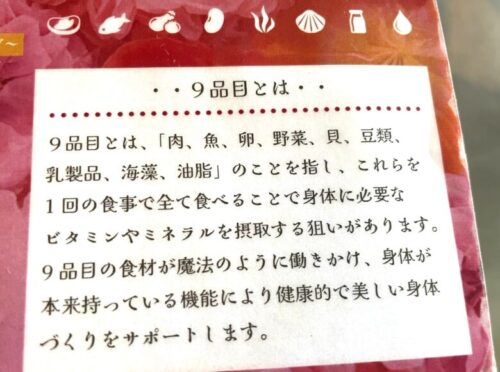 ・・９品目とは・・
９品目とは、「肉、魚、卵、野菜、貝、豆類、
乳製品、海藻、油脂」のことを指し、これらを
１回の食事で全て食べることで身体に必要な
ビタミンやミネラルを摂取する狙いがあります。
９品目の食材が魔法のように働きかけ、身体が
本来持っている機能により健康的で美しい身体
づくりをサポートします。